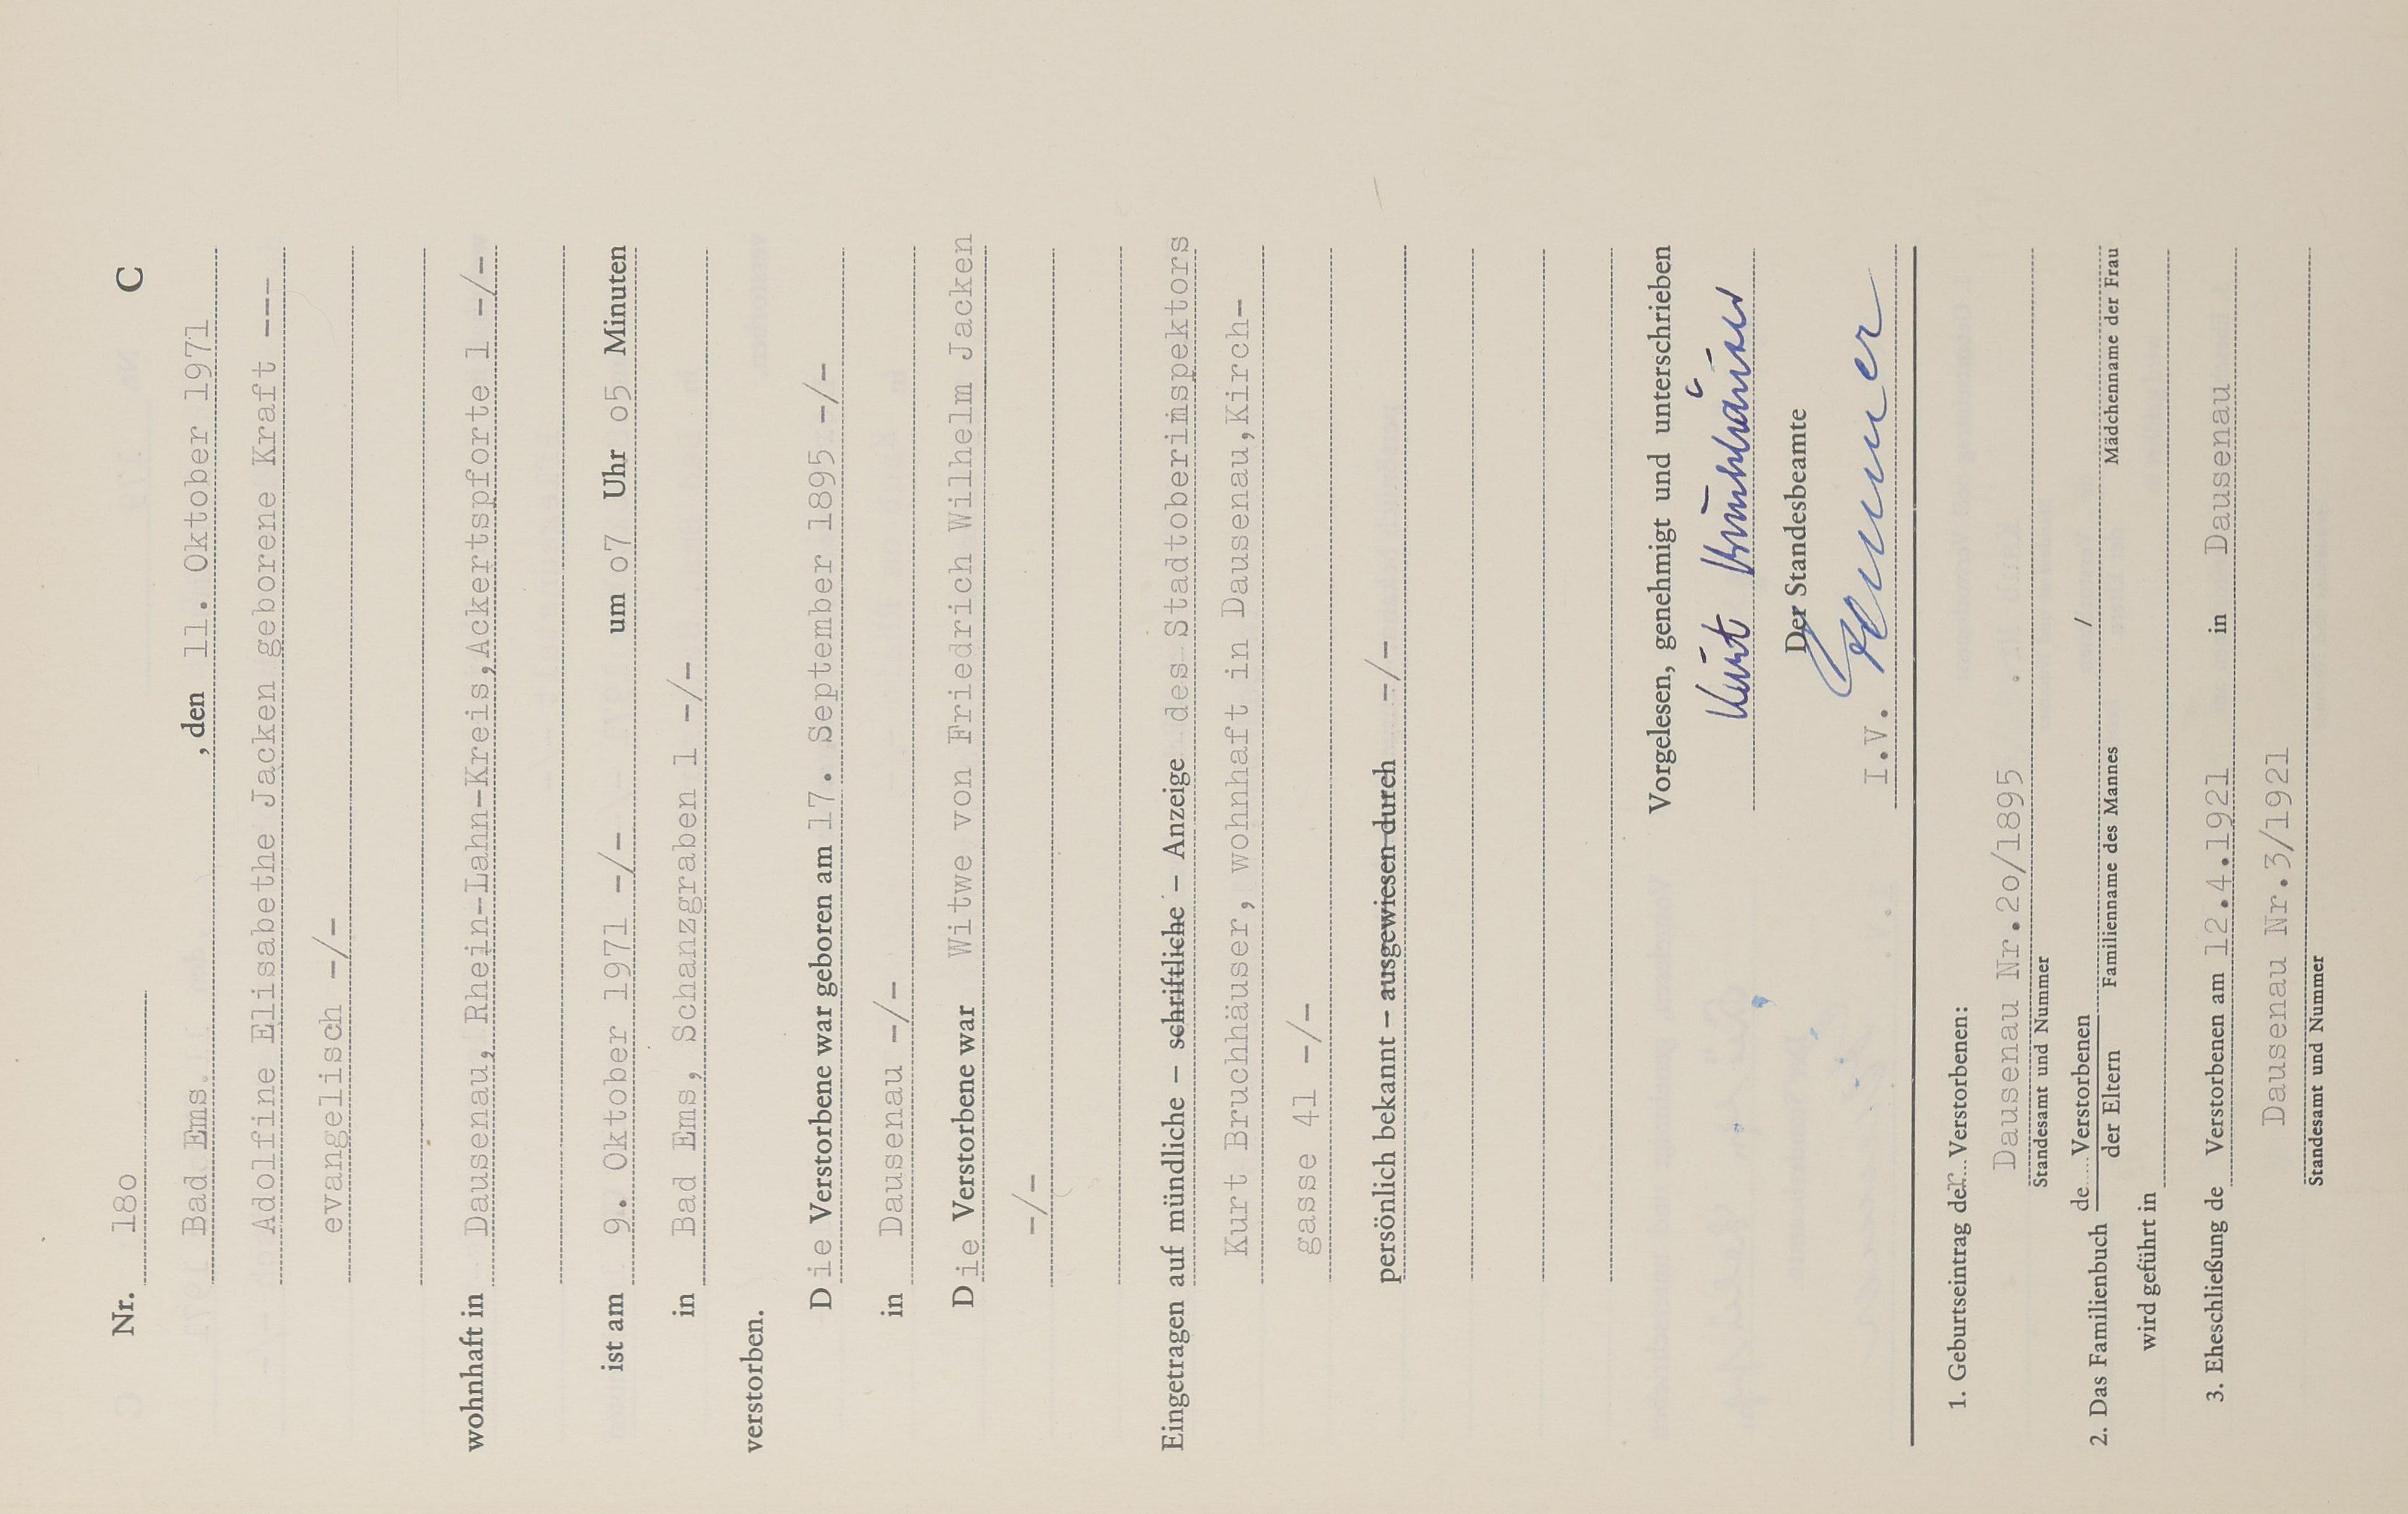 Nr. 18o C
Bad Ems , den 11. Oktober 1971
Adolfine Elisabethe Jacken geborene Kraft ---
evangelisch -/-
wohnhaft in Dausenau, Rhein-Lahn-Kreis,Ackertspforte 1 -/-
ist am 9. Oktober 1971 -/- um o7 Uhr o5 Minuten
in Bad Ems, Schanzgraben 1 -/-
verstorben.
Die Verstorbene war geboren am 17. September 1895 -/-
in Dausenau -/-
Die Verstorbene war Witwe von Friedrich Wilhelm Jacken
-/-
Eingetragen auf mündliche – schriftliche – Anzeige des Stadtoberinspektors
Kurt Bruchhäuser, wohnhaft in Dausenau,Kirch-
gasse 41 -/-
persönlich bekannt – ausgewiesen durch -/-
Vorgelesen, genehmigt und unterschrieben
Kurt Bruchhäuser
Der Standesbeamte
I.V.
1. Geburtseintrag der Verstorbenen:
Dausenau Nr.2o/1895
Standesamt und Nummer
2. Das Familienbuch de Verstorbenen /
der Eltern Familienname des Mannes Mädchenname der Frau
wird geführt in
3. Eheschließung de Verstorbenen am 12.4.1921 in Dausenau
Dausenau Nr.3/1921
Standesamt und Nummer